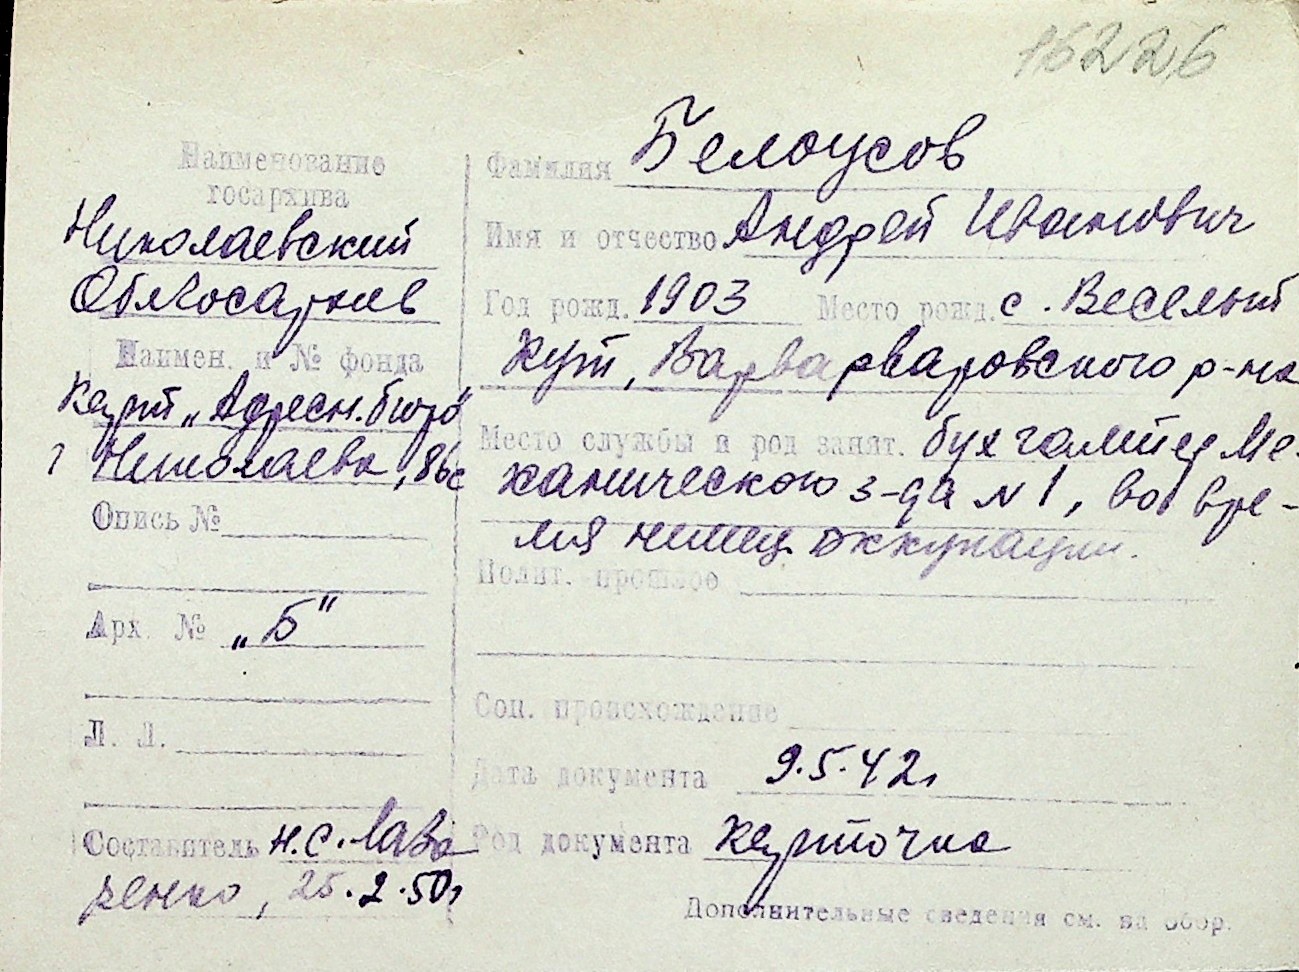 16226
Наименование
госархива
Николаевский
Облгосархив
Наимен. и № фонда
Карт. „Адресн. бюро"
г Николаева, 86с
Опись №
Арх. № „Б"
Л. Л.
Составитель Н.С. Лав
ренко, 25.2.50г
Фамилия Белоусов
Имя и отчество Андрей Иванович
Год рожд. 1903 Место рожд. с. Веселый
Кут, Варварваровского р-на
Место службы и род занят. бухгалтер Ме-
ханического з-да №1, во вре-
мя немец. оккупации.
Полит. прошлое
Соц. происхождение
Дата документа 9.5.42г
Род документа Карточка
Дополнительные сведения см. на обор.